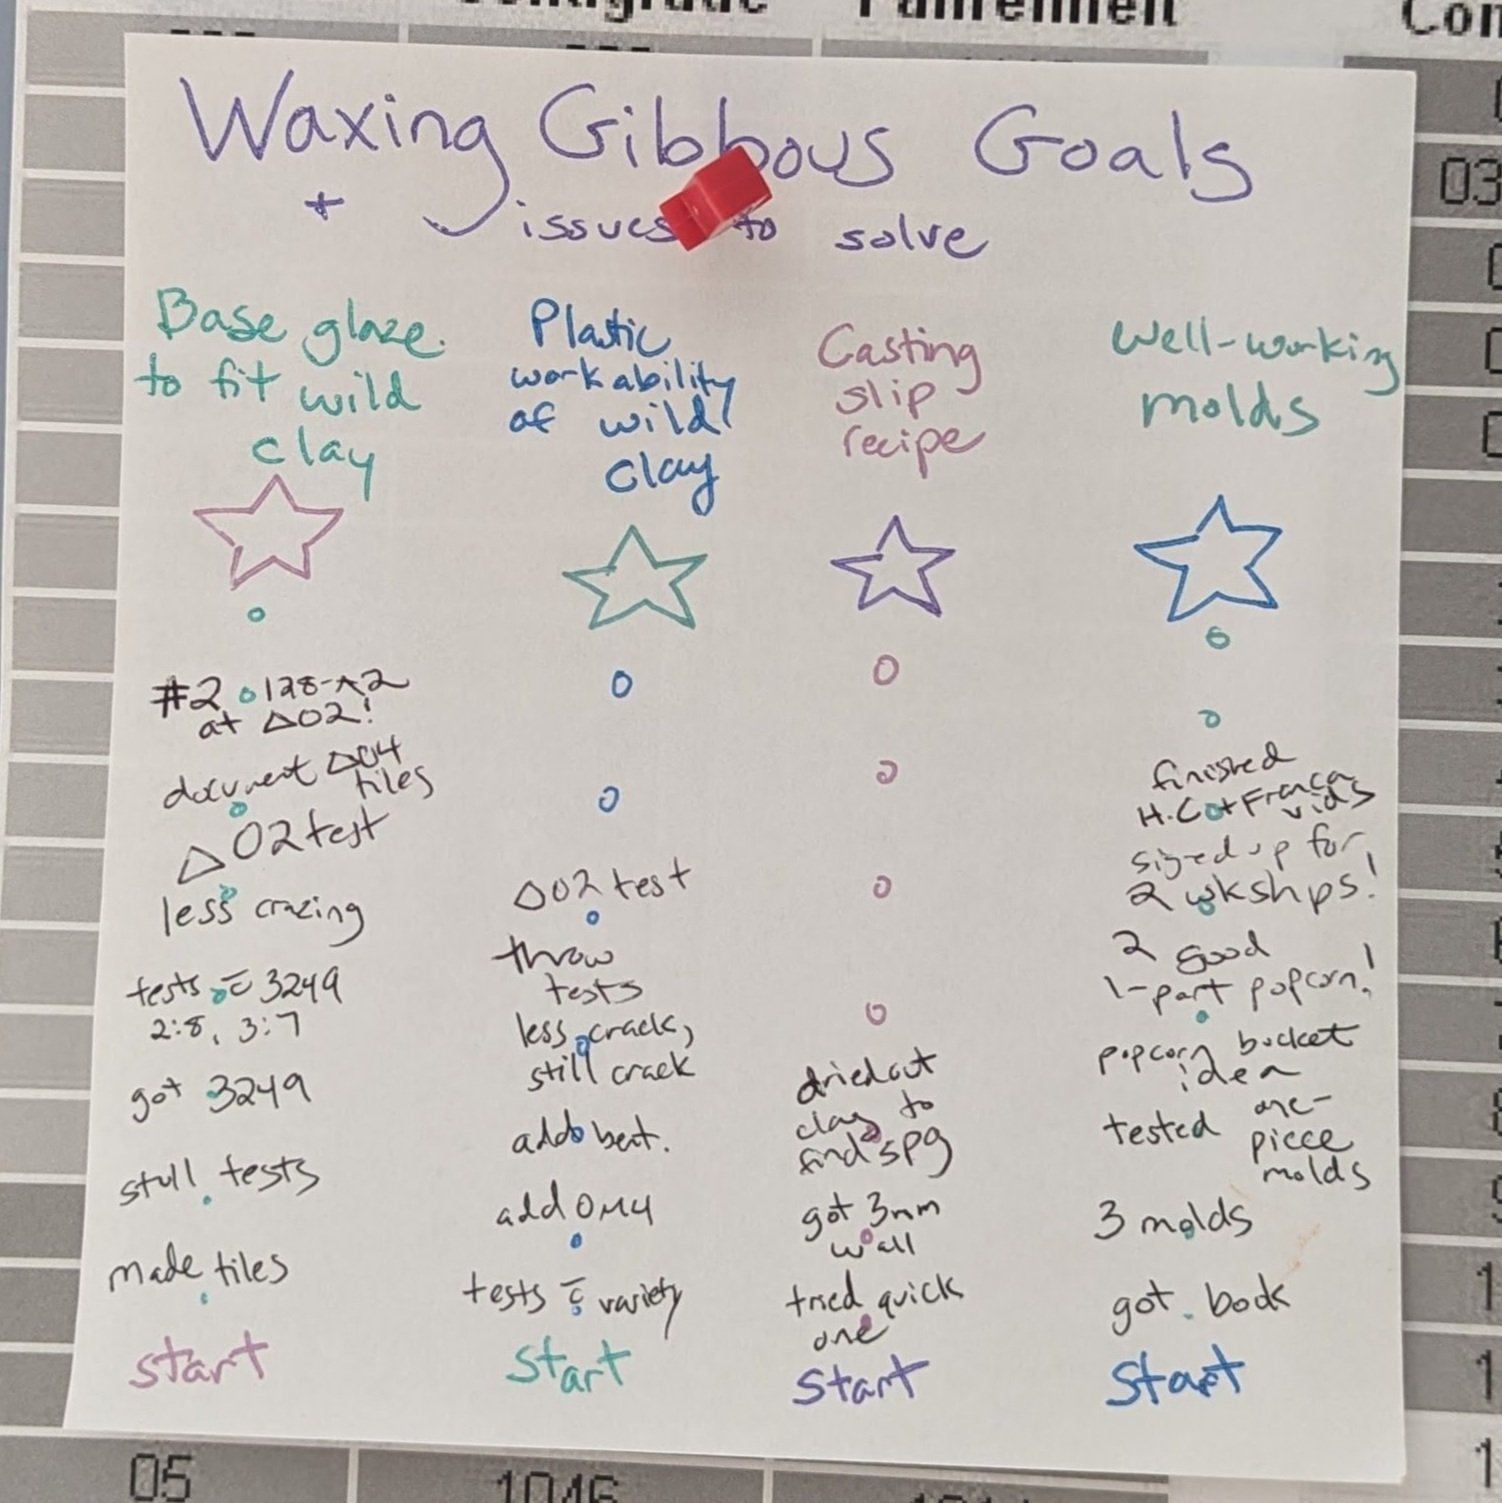 Fahrenheit
Con
03
Waxing Gibbous Goals
+ issues to solve
Base glaze
to fit wild
clay
Plastic
workability
of wild
clay
Casting
slip
recipe
well-working
molds
#2 128-A2
at △02!
document △04
tiles
△02 test
less crazing
tests c̄ 3249
2:8, 3:7
got 3249
still tests
made tiles
start
△02 test
throw
tests
less crack,
still crack
add bent.
add OM4
tests c̄ variety
start
dried out
clay to
find spg
got 3mm
wall
tried quick
one
start
finished
H.C + Franca
vids
signed up for
2 wkshps!
2 good
1-part popcorn!
popcorn bucket
idea
tested one-
piece
molds
3 molds
got book
start
05
1046